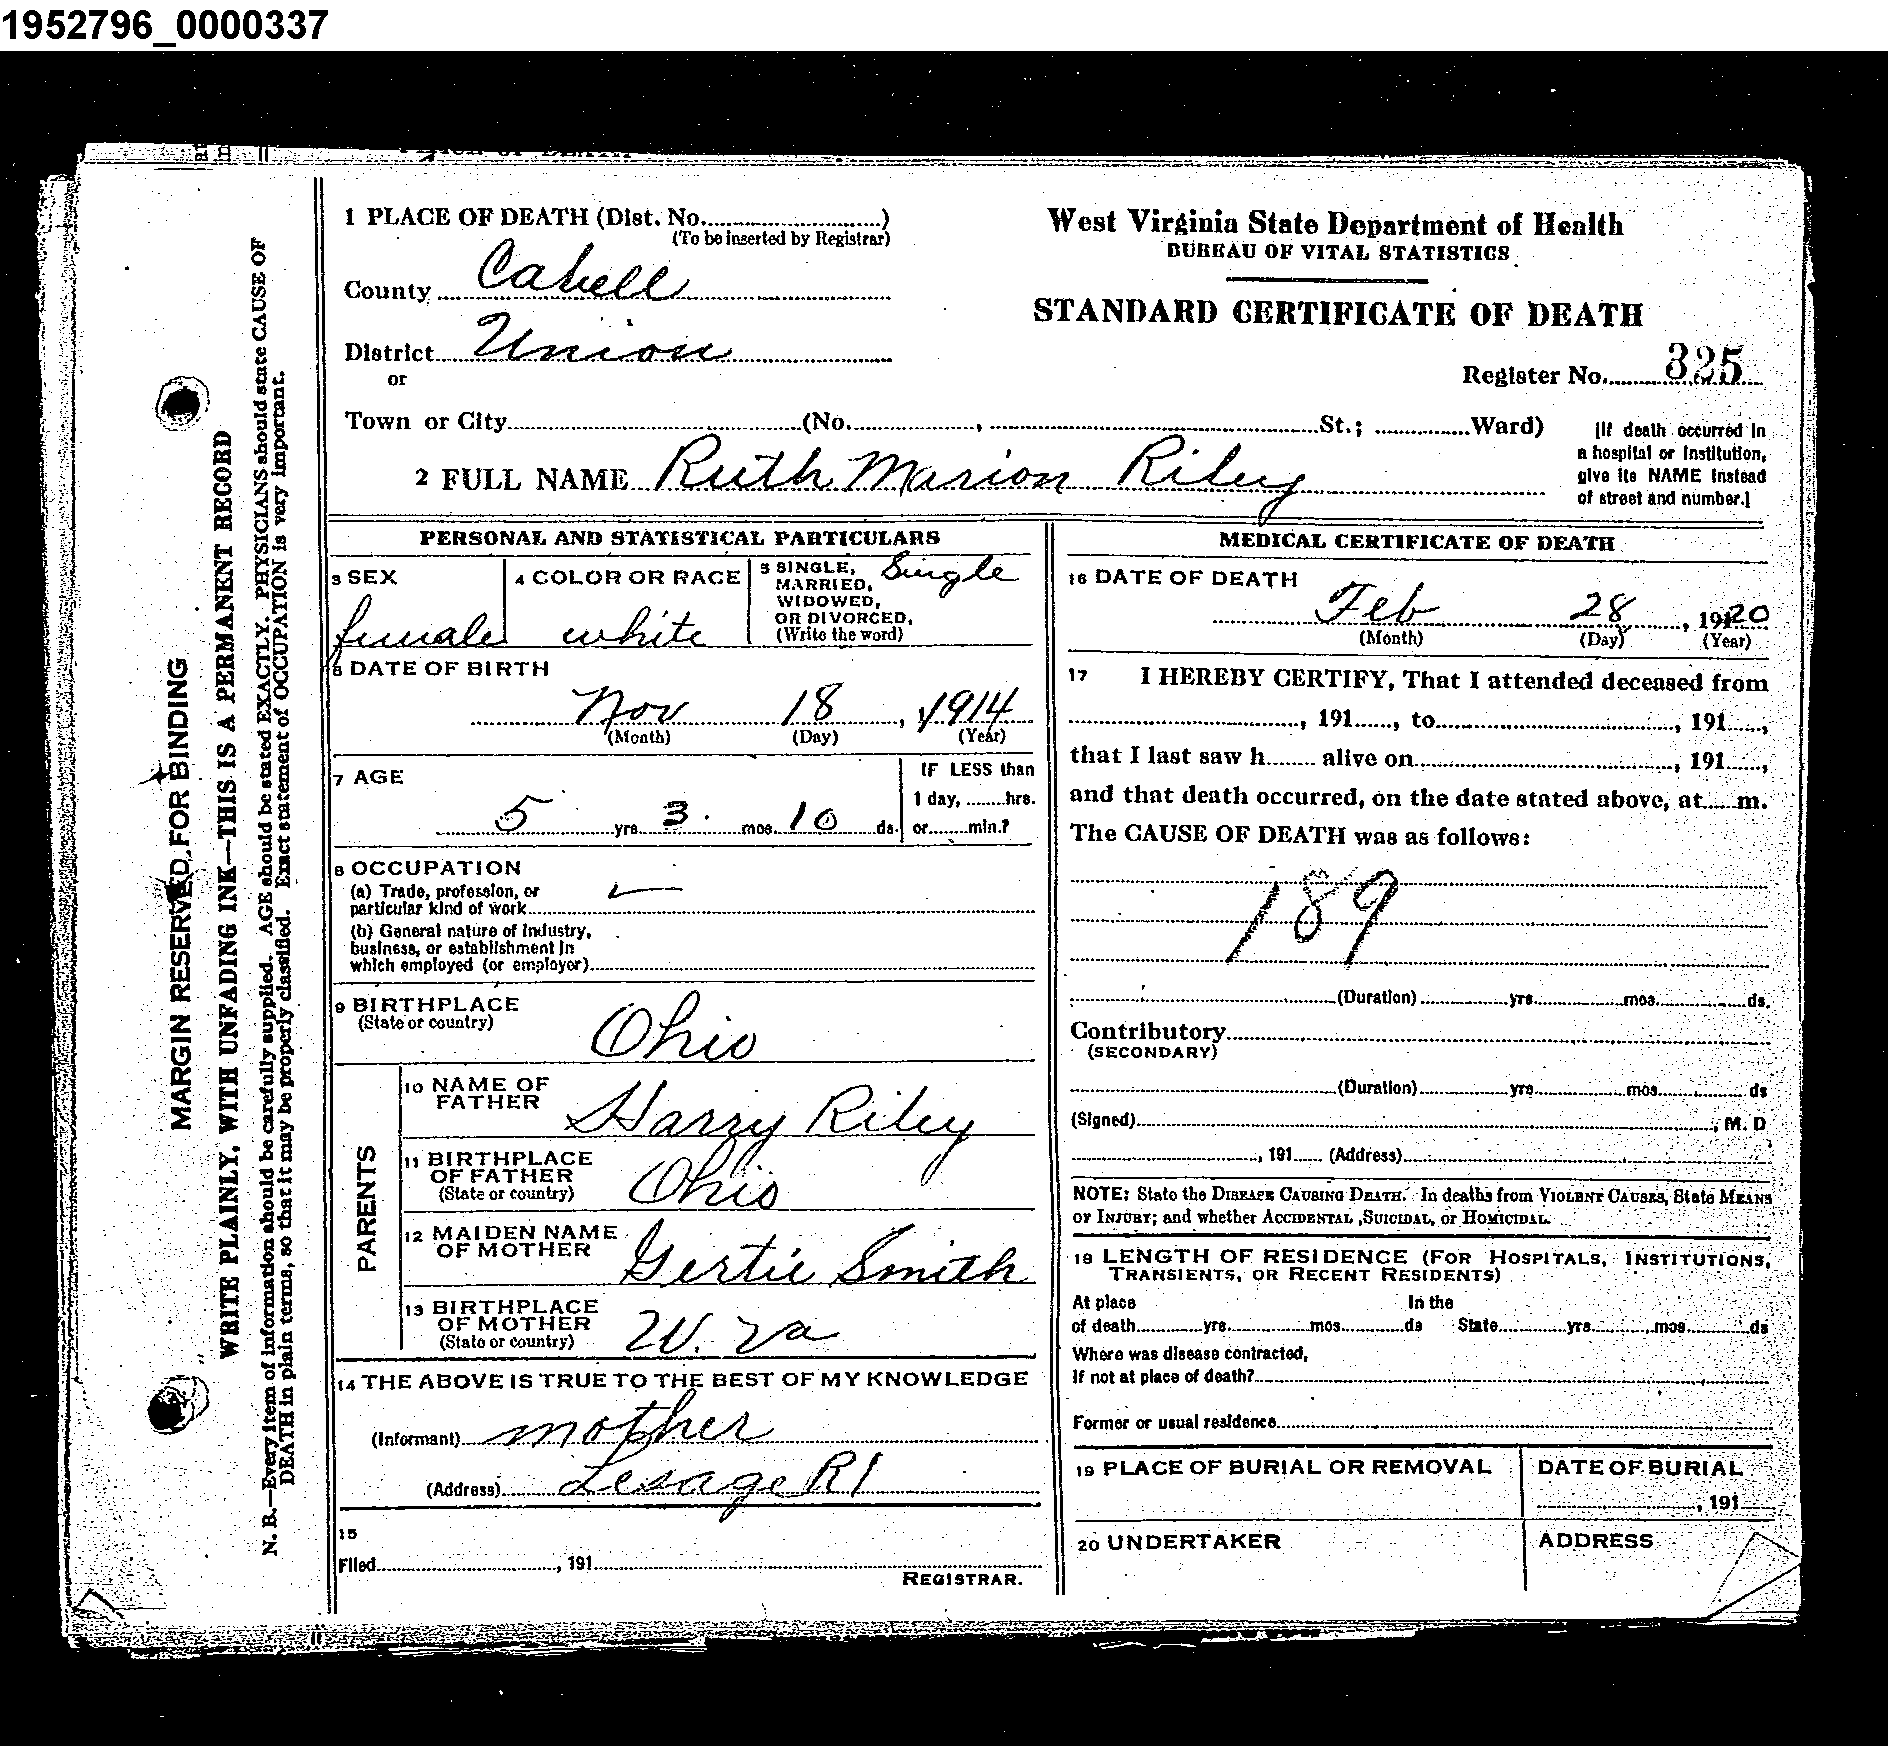 1952796_0000337
1 PLACE OF DEATH (Dist. No..............)
(To be inserted by Registrar)
County Cabell
District Union
or
Town or City..............(No.............., ..............St.; ..............Ward)
West Virginia State Department of Health
BUREAU OF VITAL STATISTICS
STANDARD CERTIFICATE OF DEATH
Register No. 325
[If death occurred in
a hospital or institution,
give its NAME instead
of street and number.]
2 FULL NAME Ruth Marion Riley
PERSONAL AND STATISTICAL PARTICULARS
3 SEX
female
4 COLOR OR RACE
white
5 SINGLE,
MARRIED,
WIDOWED,
OR DIVORCED,
(Write the word)
Single
6 DATE OF BIRTH
Nov 18, 1914
(Month) (Day) (Year)
7 AGE
5 yrs. 3. mos. 10 ds.
IF LESS than
1 day, ........hrs.
or........min.?
8 OCCUPATION
(a) Trade, profession, or
particular kind of work
(b) General nature of Industry,
business, or establishment in
which employed (or employer)
9 BIRTHPLACE
(State or country)
Ohio
PARENTS
10 NAME OF
FATHER
Harry Riley
11 BIRTHPLACE
OF FATHER
(State or country)
Ohio
12 MAIDEN NAME
OF MOTHER
Gertie Smith
13 BIRTHPLACE
OF MOTHER
(State or country)
W. Va
14 THE ABOVE IS TRUE TO THE BEST OF MY KNOWLEDGE
(Informant) mother
(Address) Lesage R1
15
Filed.............., 191..............
REGISTRAR.
MEDICAL CERTIFICATE OF DEATH
16 DATE OF DEATH
Feb 28, 1920
(Month) (Day) (Year)
17 I HEREBY CERTIFY, That I attended deceased from
.............., 191......, to.............., 191......,
that I last saw h........ alive on.............., 191......,
and that death occurred, on the date stated above, at......m.
The CAUSE OF DEATH was as follows:
189
(Duration)..............yrs..............mos..............ds.
Contributory
(SECONDARY)
(Duration)..............yrs..............mos..............ds
(Signed).............., M. D
.............., 191...... (Address)..............
NOTE: State the DISEASE CAUSING DEATH. In deaths from VIOLENT CAUSES, State MEANS
OF INJURY; and whether ACCIDENTAL ,SUICIDAL, or HOMICIDAL.
18 LENGTH OF RESIDENCE (FOR HOSPITALS, INSTITUTIONS,
TRANSIENTS, OR RECENT RESIDENTS)
At place In the
of death..............yrs..............mos..............ds State..............yrs..............mos..............ds
Where was disease contracted,
If not at place of death?
Former or usual residence
19 PLACE OF BURIAL OR REMOVAL
DATE OF BURIAL
.............., 191......
20 UNDERTAKER
ADDRESS
MARGIN RESERVED FOR BINDING
WRITE PLAINLY, WITH UNFADING INK—THIS IS A PERMANENT RECORD
N. B.—Every item of information should be carefully supplied. AGE should be stated EXACTLY. PHYSICIANS should state CAUSE OF
DEATH in plain terms, so that it may be properly classified. Exact statement of OCCUPATION is very important.